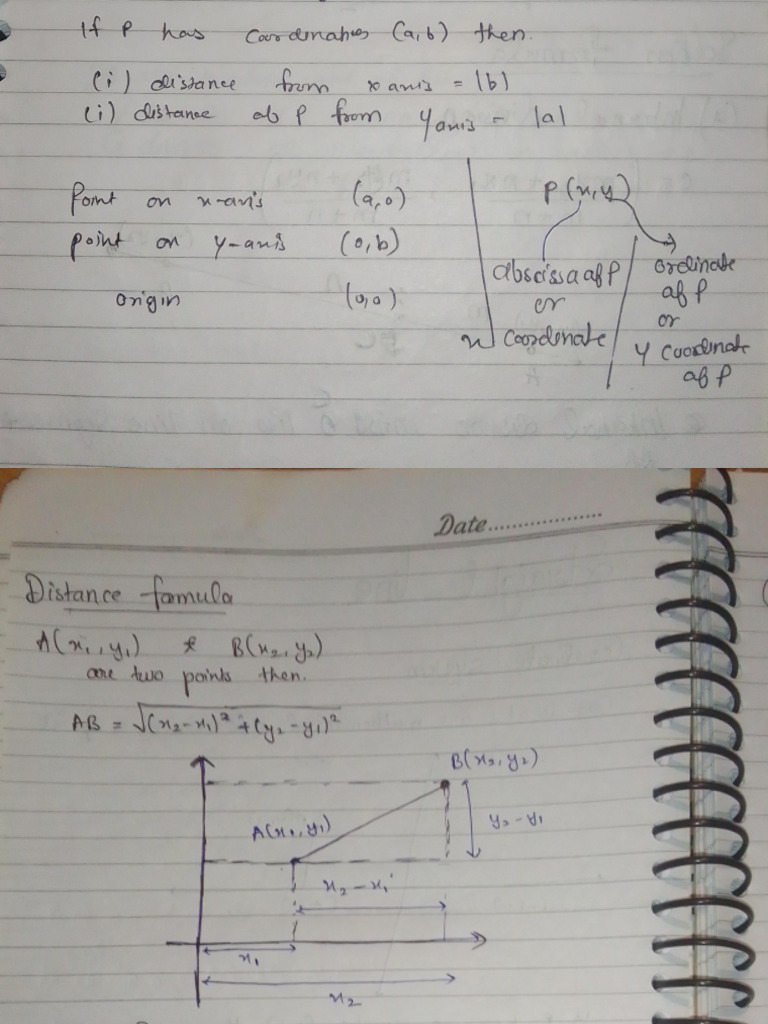 If P has coordinates (a,b) then.
(i) distance from x axis = |b|
(i) distance of P from y axis = |a|
Point on x-axis (a,0)
point on y-axis (0,b)
origin (0,0)
P(x,y)
abscissa of P
or
x coordinate
ordinate
of P
or
y coordinate
of P
Date
Distance formula
A(x₁,y₁) & B(x₂,y₂)
are two points then.
AB = √(x₂-x₁)² + (y₂-y₁)²
B(x₂,y₂)
A(x₁,y₁)
y₂-y₁
x₂-x₁
x₁
x₂